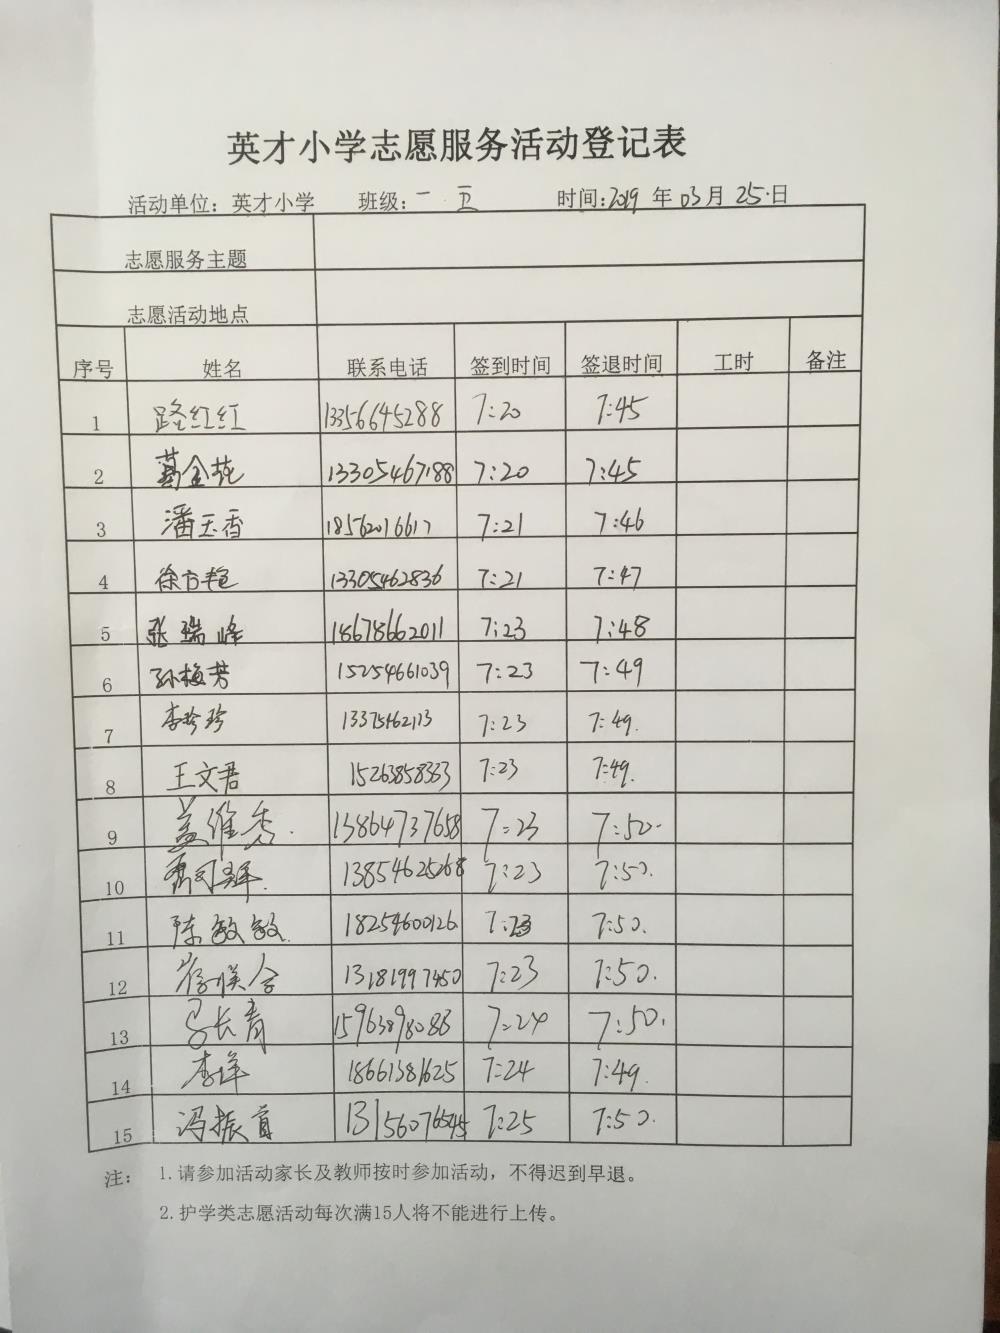 英才小学志愿服务活动登记表
活动单位：英才小学 班级：一 五 时间：2019 年 03 月 25 日
志愿服务主题
志愿活动地点
序号 姓名 联系电话 签到时间 签退时间 工时 备注
1 路红红 13356645288 7:20 7:45
2 金花 13305467188 7:20 7:45
3 潘玉香 1856201661 7:21 7:46
4 徐方艳 13305462836 7:21 7:47
5 张瑞峰 18678662011 7:23 7:48
6 孙梅芳 15254661039 7:23 7:49
7 李珍珍 7:23 7:49.
8 王文君 15263858363 7:23 7:49.
9 盖维秀. 13864737658 7:23 7:50.
10 13854625268 7:23 7:50.
11 陈敏敏. 18254600126 7:23 7:50.
12 崔 13181997450 7:23 7:50.
13 马长青 15963898088 7:24 7:50.
14 李洋 18661381625 7:24 7:49.
15 冯振首 13156076545 7:25 7:50.
注： 1.请参加活动家长及教师按时参加活动，不得迟到早退。
2.护学类志愿活动每次满15人将不能进行上传。